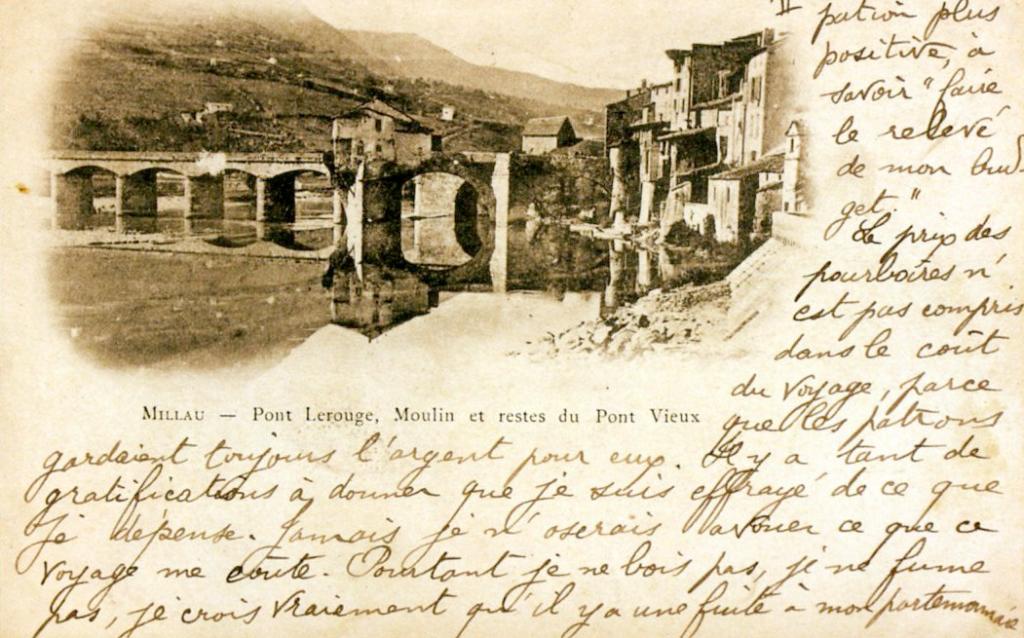 II
pation plus
positive, à
savoir "faire
le relevé
de mon bud-
get."
Le prix des
pourboires n'
est pas compris
dans le coût
du voyage, parce
que les patrons
MILLAU — Pont Lerouge, Moulin et restes du Pont Vieux
gardaient toujours l'argent pour eux. Il y a tant de
gratifications à donner que je suis effrayé de ce que
je dépense. Jamais je n'oserais avouer ce que ce
voyage me coûte. Pourtant je ne bois pas, je ne fume
pas, je crois vraiement qu'il y a une fuite à mon portemonnaie